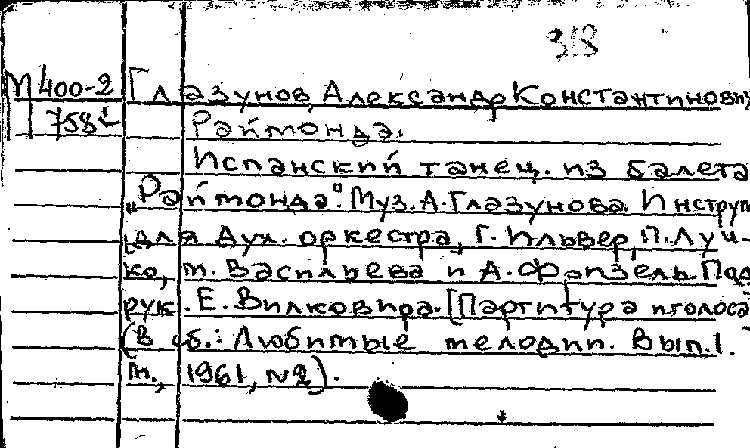 318
М 400-2 Глазунов, Александр Константинович
758 Раймонда.
Испанский танец. из балета
"Раймонда". Муз. А. Глазунова. Инструм
[для дух. оркестра, Г. Ильвер, П. Луч-
ко, т. Васильева и А. Фрпзель. Под
рук. Е. Вилковира. [Партитура и голоса
(В сб.: Любимые мелодии. Вып. 1.
М., 1961, №2).